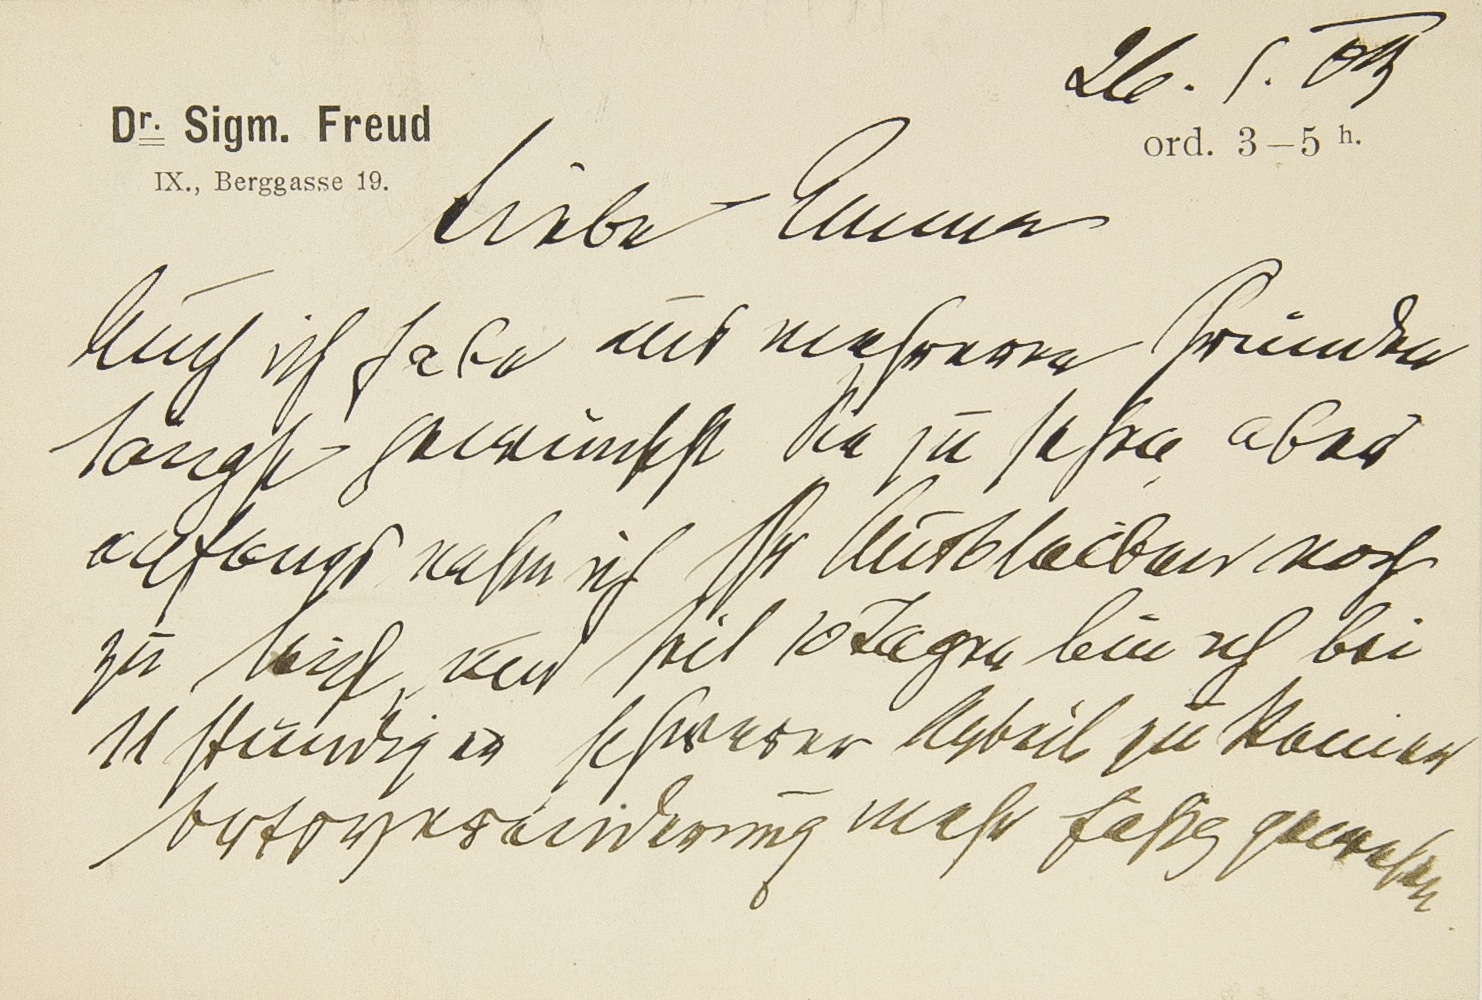 26. 1. 05
Dr. Sigm. Freud
ord. 3–5 h.
IX., Berggasse 19.
Liebe Emma
Auch ich habe aus mehreren Gründen
längst gewünscht Sie zu sehen, aber
anfangs nahm ich Ihr Ausbleiben noch
zu leicht, und seit 10 Tagen bin ich bei
11 stündiger schwerer Arbeit zu keiner
mehr fähig gewesen